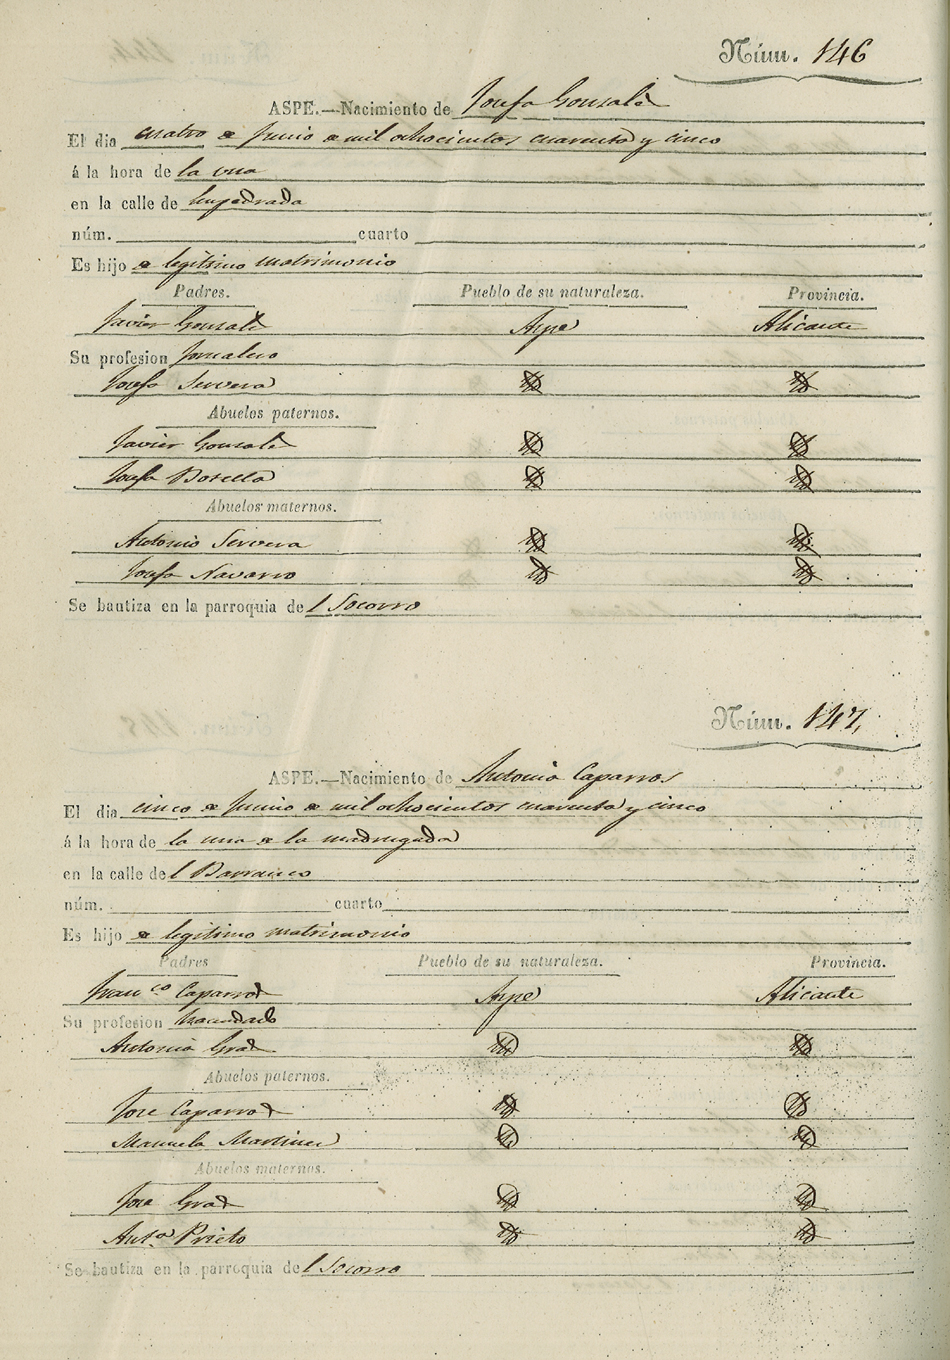 Núm. 146
ASPE.—Nacimiento de Josefa Gonzalez
El dia cuatro de Junio de mil ochocientos cuarenta y cinco
á la hora de la una
en la calle de Empedrada
núm. cuarto
Es hijo de legitimo matrimonio
Padres. Pueblo de su naturaleza. Provincia.
Javier Gonzalez Aspe Alicante
Su profesion Jornalero
Josefa Cervera id id
Abuelos paternos.
Javier Gonzalez id id
Josefa Botella id id
Abuelos maternos.
Antonio Cervera id id
Josefa Navarro id id
Se bautiza en la parroquia del Socorro
Núm. 147
ASPE.—Nacimiento de Antonia Caparros
El dia cinco de Junio de mil ochocientos cuarenta y cinco
á la hora de la una de la madrugada
en la calle del Barranco
núm. cuarto
Es hijo de legitimo matrimonio
Padres Pueblo de su naturaleza. Provincia.
Franco Caparros Aspe Alicante
Su profesion hacendado
Antonia Grao id id
Abuelos paternos.
Jose Caparros id id
Manuela Martinez id id
Abuelos maternos.
Jose Grao id id
Anta Prieto id id
Se bautiza en la parroquia del Socorro